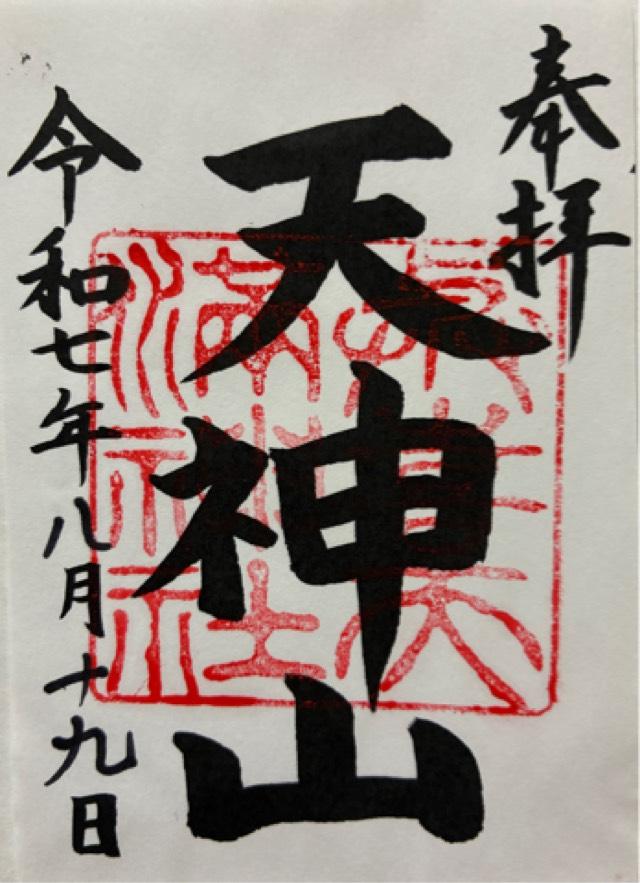 奉拝
天神山
令和七年八月十九日
天
満神社